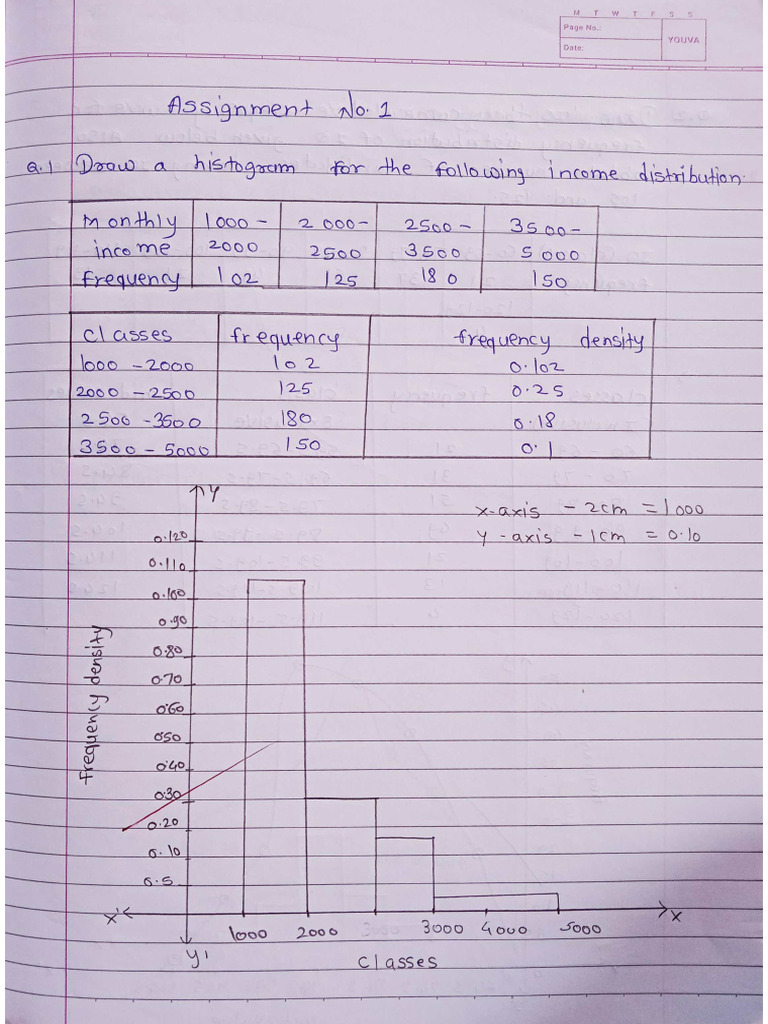 M T W T F S S
Page No.:
YOUVA
Date:
Assignment No. 1
Q.1 Draw a histogram for the following income distribution.
Monthly 1000 - 2000 - 2500 - 3500 -
income 2000 2500 3500 5000
frequency 102 125 180 150
classes frequency frequency density
1000 - 2000 102 0.102
2000 - 2500 125 0.25
2500 - 3500 180 0.18
3500 - 5000 150 0.1
Y
x-axis - 2cm = 1000
Y-axis - 1cm = 0.10
0.120
0.110
0.100
0.90
0.80
0.70
0.60
0.50
0.40
0.30
0.20
0.10
0.5
frequency density
X' X
1000 2000 3000 4000 5000
Y'
classes